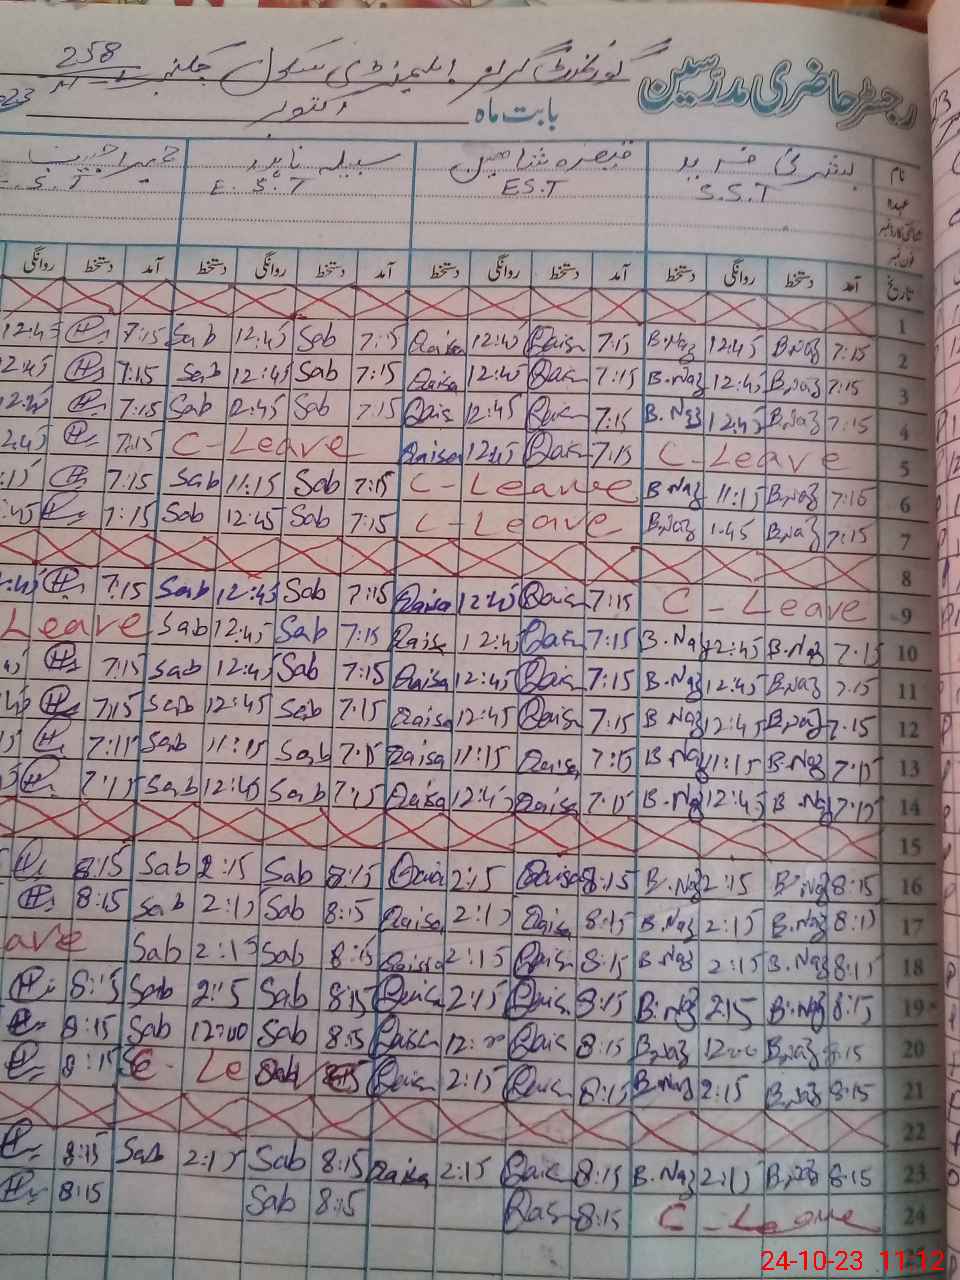 رجسٹر حاضری مدرسین گورنمنٹ گرلز ایلیمنٹری سکول 258
بابت ماہ اکتوبر 23
نام
عہدہ S.S.T E.S.T E.S.T E.S.T
شناختی کارڈ نمبر
فون نمبر
تاریخ آمد دستخط روانگی دستخط آمد دستخط روانگی دستخط آمد دستخط روانگی دستخط آمد دستخط روانگی
1
2 7:15 B.Naz 12:45 B.Naz 7:15 Qaisa 12:45 Qaisa 7:15 Sab 12:45 Sab 7:15 H 12:45
3 7:15 B.Naz 12:45 B.Naz 7:15 Qais 12:45 Qaisa 7:15 Sab 12:45 Sab 7:15 H 12:45
4 7:15 B.Naz 12:45 B.Naz 7:15 Qais 12:45 Qais 7:15 Sab 12:45 Sab 7:15 H 12:45
5 C-Leave 7:15 Qais 12:45 Qaisa C-Leave 7:15 H 2:45
6 7:15 B.Naz 11:15 B.Naz C-Leave 7:15 Sab 11:15 Sab 7:15 H :15
7 7:15 B.Naz 1:45 B.Naz C-Leave 7:15 Sab 12:45 Sab 7:15 H :45
8
9 C-Leave 7:15 Qais 12:45 Qaisa 7:15 Sab 12:45 Sab 7:15 H 2:45
10 7:15 B.Naz 12:45 B.Naz 7:15 Qais 12:45 Qaisa 7:15 Sab 12:45 Sab Leave
11 7:15 B.Naz 12:45 B.Naz 7:15 Qais 12:45 Qaisa 7:15 Sab 12:45 Sab 7:15 H 45
12 7:15 B.Naz 12:45 B.Naz 7:15 Qaisa 12:45 Qaisa 7:15 Sab 12:45 Sab 7:15 H 45
13 7:15 B.Naz 11:15 B.Naz 7:15 Qaisa 11:15 Qaisa 7:15 Sab 11:15 Sab 7:15 H 15
14 7:15 B.Naz 12:45 B.Naz 7:15 Qaisa 12:45 Qaisa 7:15 Sab 12:45 Sab 7:15 H
15
16 8:15 B.Naz 2:15 B.Naz 8:15 Qaisa 2:15 Qaisa 8:15 Sab 2:15 Sab 8:15 H
17 8:15 B.Naz 2:15 B.Naz 8:15 Qaisa 2:15 Qaisa 8:15 Sab 2:15 Sab 8:15 H
18 8:15 B.Naz 2:15 B.Naz 8:15 Qais 2:15 Qaisa 8:15 Sab 2:15 Sab ave
19 8:15 B.Naz 2:15 B.Naz 8:15 Qais 2:15 Qaisa 8:15 Sab 2:15 Sab 8:15 H
20 8:15 B.Naz 12:00 B.Naz 8:15 Qais 12:00 Qaisa 8:15 Sab 12:00 Sab 8:15 H
21 8:15 B.Naz 2:15 B.Naz 8:15 Qais 2:15 Qais C-Le 8:15 H
22
23 8:15 B.Naz 2:15 B.Naz 8:15 Qais 2:15 Qaisa 8:15 Sab 2:15 Sab 8:15 H
24 C-Leave 8:15 Qas 8:15 Sab 8:15 H
24-10-23 11:12